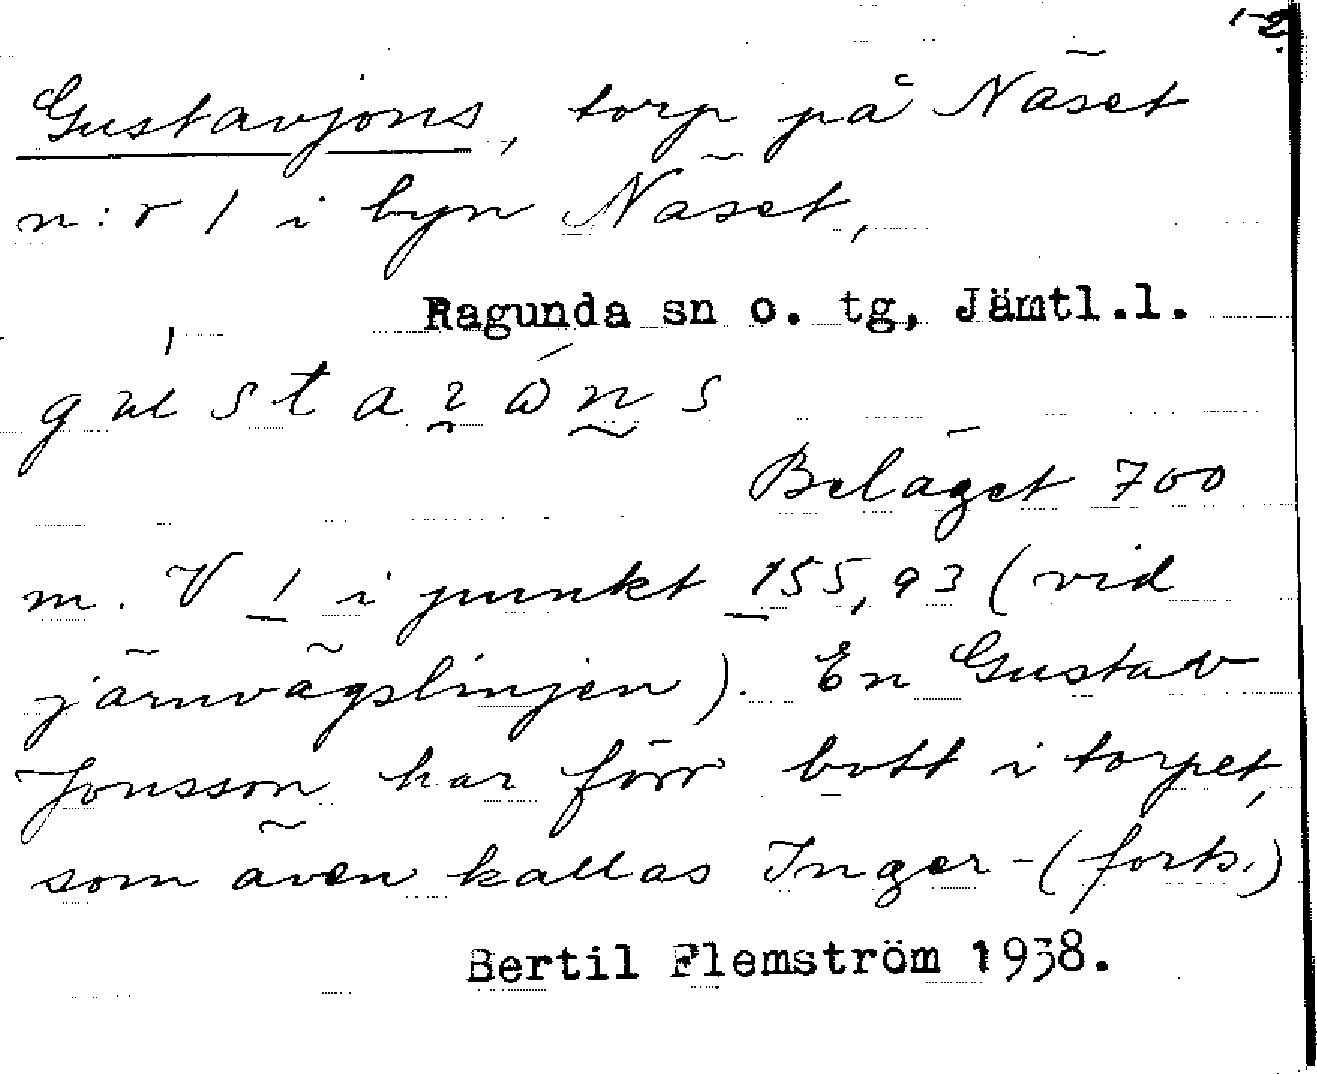 1-2.
Gustavjons, torp på Näset
n:r 1 i byn Näset,
Ragunda sn o. tg, Jämtl.l.
Beläget 700
m. V 1 i punkt 155,93 (vid
järnvägslinjen). En Gustav
Jonsson har förr bott i torpet,
som även kallas Inger-(forts.)
Bertil Flemström 1938.